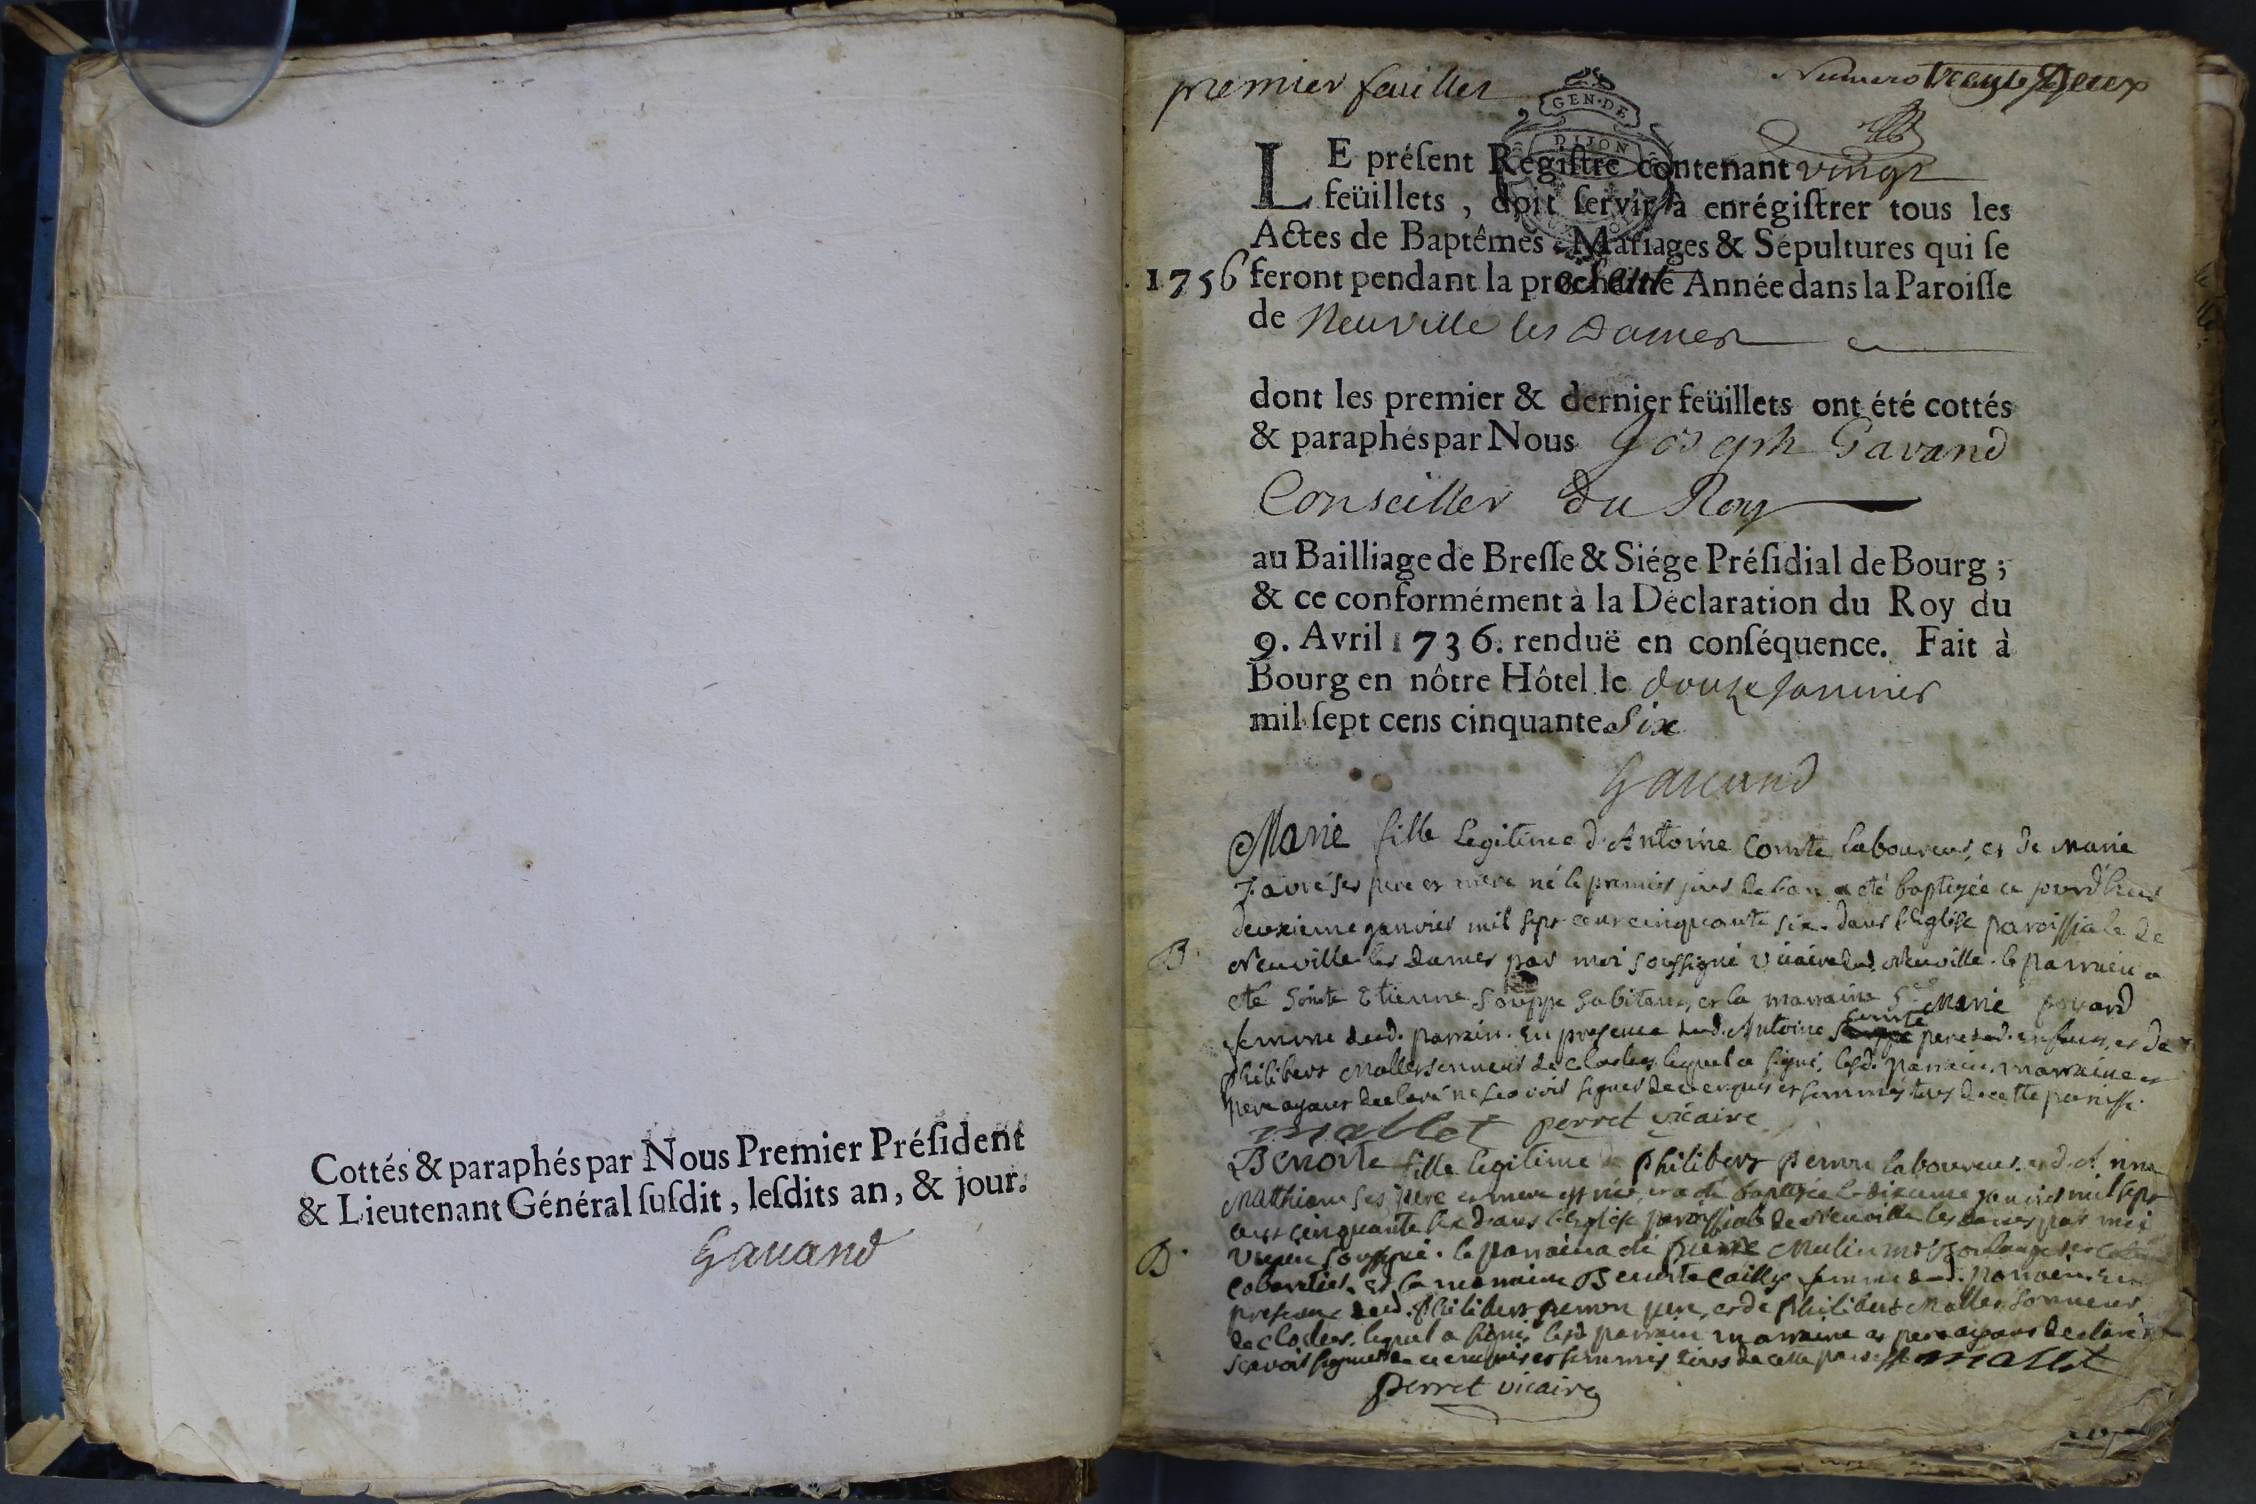 Cottés & paraphés par Nous Premier Préſident
& Lieutenant Général ſuſdit, leſdits an, & jour.
Gauand
premier feuillet
Numero trente Deux
GEN·DE
DIJON
LE préſent Regiſtre contenant vingt
feüillets, doit ſervir à enrégiſtrer tous les
Actes de Baptêmes, Mariages & Sépultures qui ſe
1756 feront pendant la Année dans la Paroiſſe
de Neuville les Dames
dont les premier & dernier feüillets ont été cottés
& paraphés par Nous Joseph Gavand
Conseiller du Roy
au Bailliage de Breſſe & Siége Préſidial de Bourg ;
& ce conformément à la Déclaration du Roy du
9. Avril 1736. renduë en conſéquence. Fait à
Bourg en nôtre Hôtel le douze janvier
mil ſept cens cinquante Six
Gauand
Marie fille legitime d'Antoine Comte laboureur, et de Marie
ses pere et mere né le premier jour de l'an a eté baptizée ce jourd'huy
deuxieme janvier mil sept cent cinquante six. dans l'Eglise paroissiale de
B. Neuville les Dames par moi soussigné vicaire dud. Neuville. le parrain a
eté Etienne habitant, et la marraine Marie
femme dud. parrain. En presence dud. Antoine Comte pere dud. enfant, et de
Philibert Mallet sonneur de cloches lequel a signé, lesd. parrain, marraine et
pere ayant declaré ne sçavoir signer de ce enquis et sommés tous de cette paroisse.
mallet perret vicaire
Benoite fille legitime de Philibert perron laboureur. et d'Anne
Matthieu ses pere et mere est née, et a été baptizée le dixieme janvier mil sept
cent cinquante six dans l'Eglise paroissiale de Neuville les dames par moi
B. vicaire soussigné. le parrain a été pierre Mulin
cabaretier. et la marraine Benoite Cailly femme dud. parrain. En
presence dud. Philibert perron pere, et de Philibert Mallet sonneur
de cloches. lequel a signé, lesd. parrain marraine et pere ayant declaré
scavoir signer de ce enquis et sommés tous de cette paroisse mallet
perret vicaire